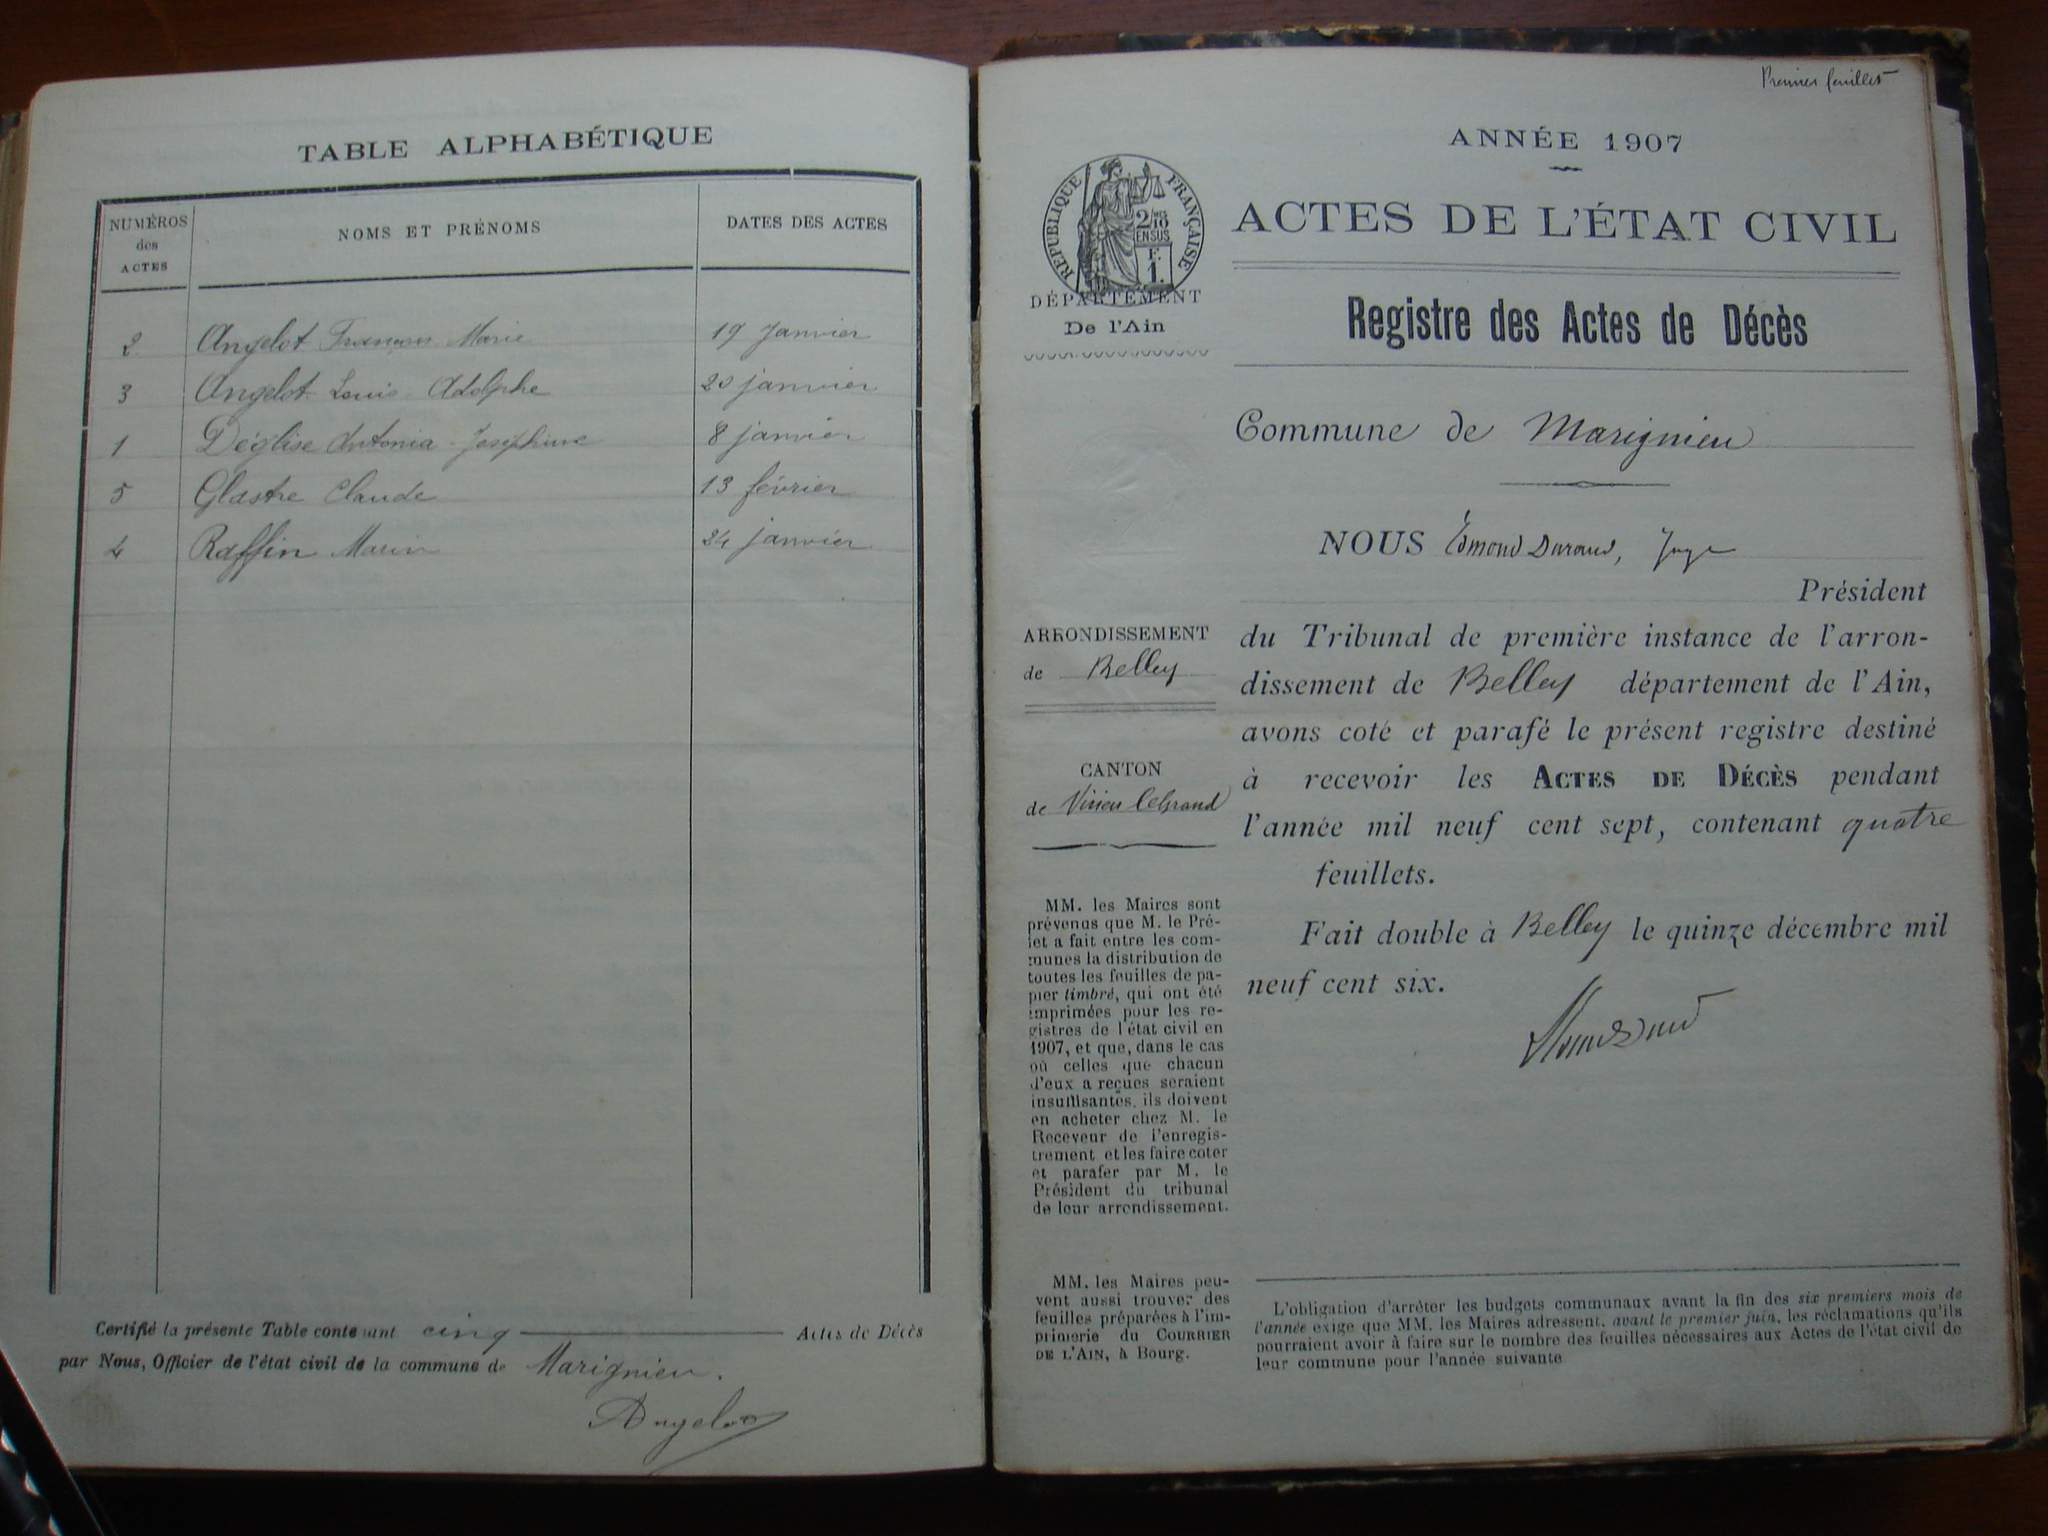 TABLE ALPHABÉTIQUE
NUMÉROS
des
ACTES
NOMS ET PRÉNOMS
DATES DES ACTES
2 Angelot François Marie 19 Janvier
3 Angelot Louis Adolphe 20 janvier
1 Déglise Antonia Joséphine 8 janvier
5 Glastre Claude 13 février
4 Raffin Marin 24 janvier
Certifié la présente Table contenant cinq Actes de Décès
par Nous, Officier de l'état civil de la commune de Marignieu.
Angelot
Premier feuillet
ANNÉE 1907
RÉPUBLIQUE FRANÇAISE
2/10 MES
EN SUS
F.
1.
DÉPARTEMENT
De l'Ain
ACTES DE L'ÉTAT CIVIL
Registre des Actes de Décès
Commune de Marignieu
NOUS Edmond Durand, Juge
Président
du Tribunal de première instance de l'arron-
dissement de Belley département de l'Ain,
avons coté et parafé le présent registre destiné
à recevoir les ACTES DE DÉCÈS pendant
l'année mil neuf cent sept, contenant quatre
feuillets.
Fait double à Belley le quinze décembre mil
neuf cent six.
ARRONDISSEMENT
de Belley
CANTON
de Virieu le Grand
MM. les Maires sont
prévenus que M. le Pré-
fet a fait entre les com-
munes la distribution de
toutes les feuilles de pa-
pier timbré, qui ont été
imprimées pour les re-
gistres de l'état civil en
1907, et que, dans le cas
où celles que chacun
d'eux a reçues seraient
insuffisantes, ils doivent
en acheter chez M. le
Receveur de l'enregis-
trement et les faire coter
et parafer par M. le
Président du tribunal
de leur arrondissement.
MM. les Maires peu-
vent aussi trouver des
feuilles préparées à l'im-
primerie du COURRIER
DE L'AIN, à Bourg.
L'obligation d'arrêter les budgets communaux avant la fin des six premiers mois de
l'année exige que MM. les Maires adressent, avant le premier juin, les réclamations qu'ils
pourraient avoir à faire sur le nombre des feuilles nécessaires aux Actes de l'état civil de
leur commune pour l'année suivante